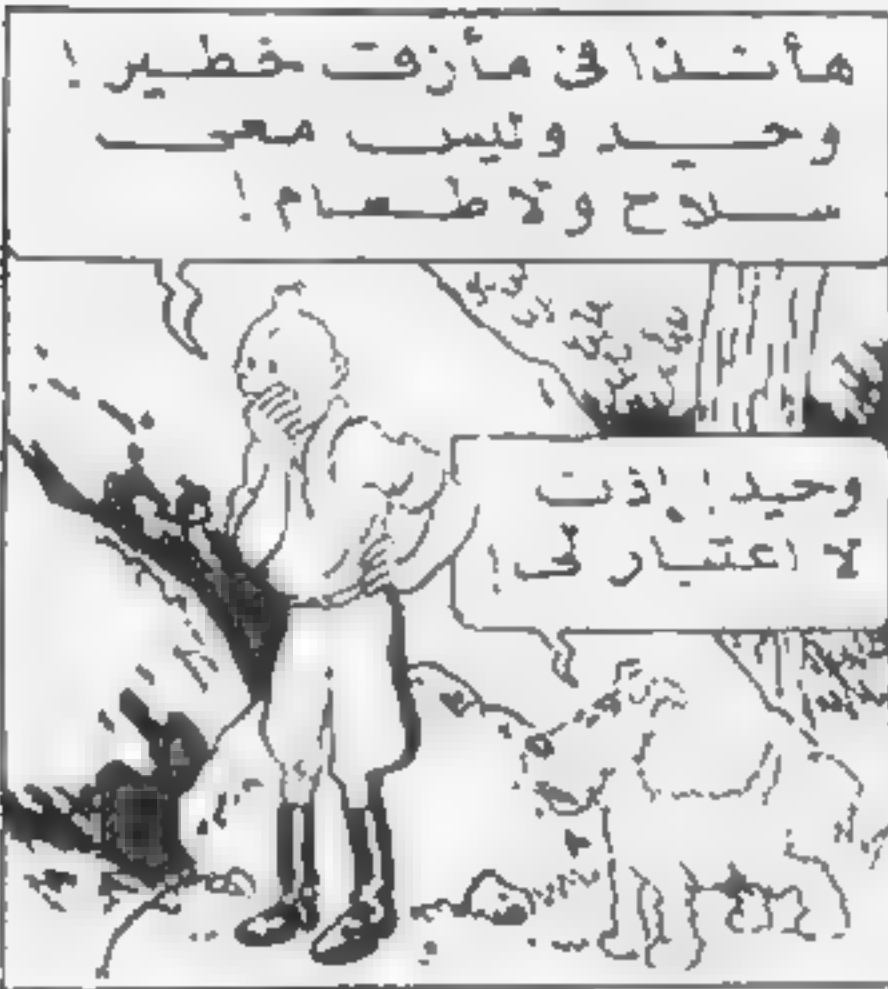 هأنذا في مأزق خطير !
وحيد وليس معى
سلاح ولا طعام !
وحيد ! إذن
لا اعتبار لى !